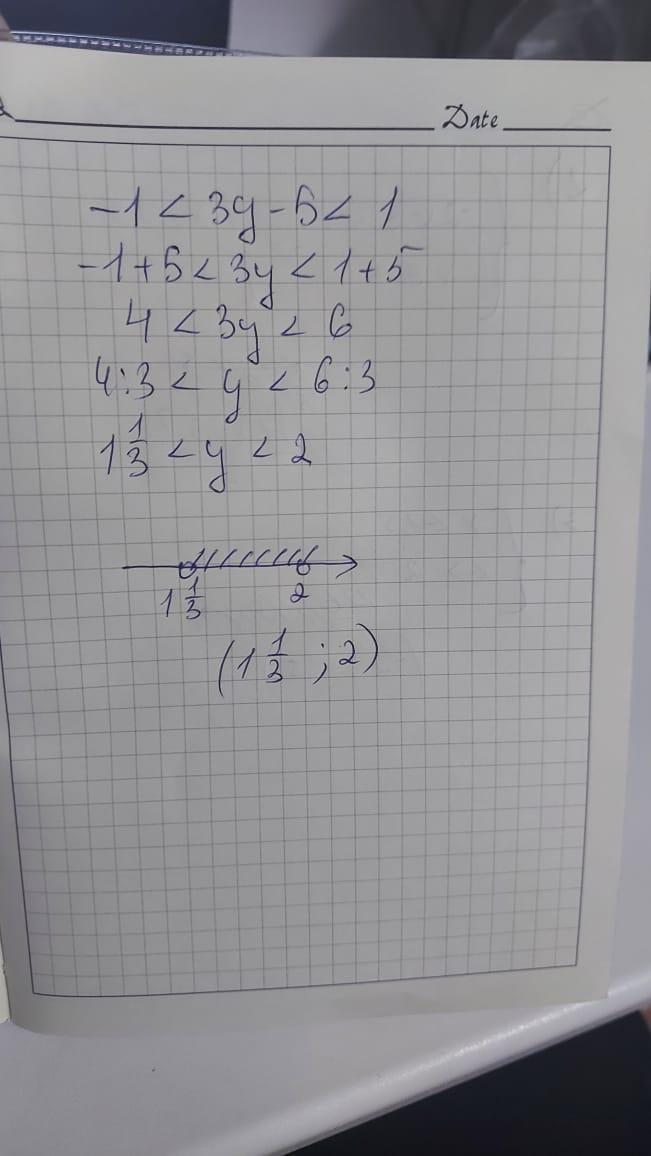 Date
-1 < 3y - 5 < 1
-1+5 < 3y < 1+5
4 < 3y < 6
4:3 < y < 6:3
1 1/3 < y < 2
1 1/3 2
(1 1/3 ; 2)